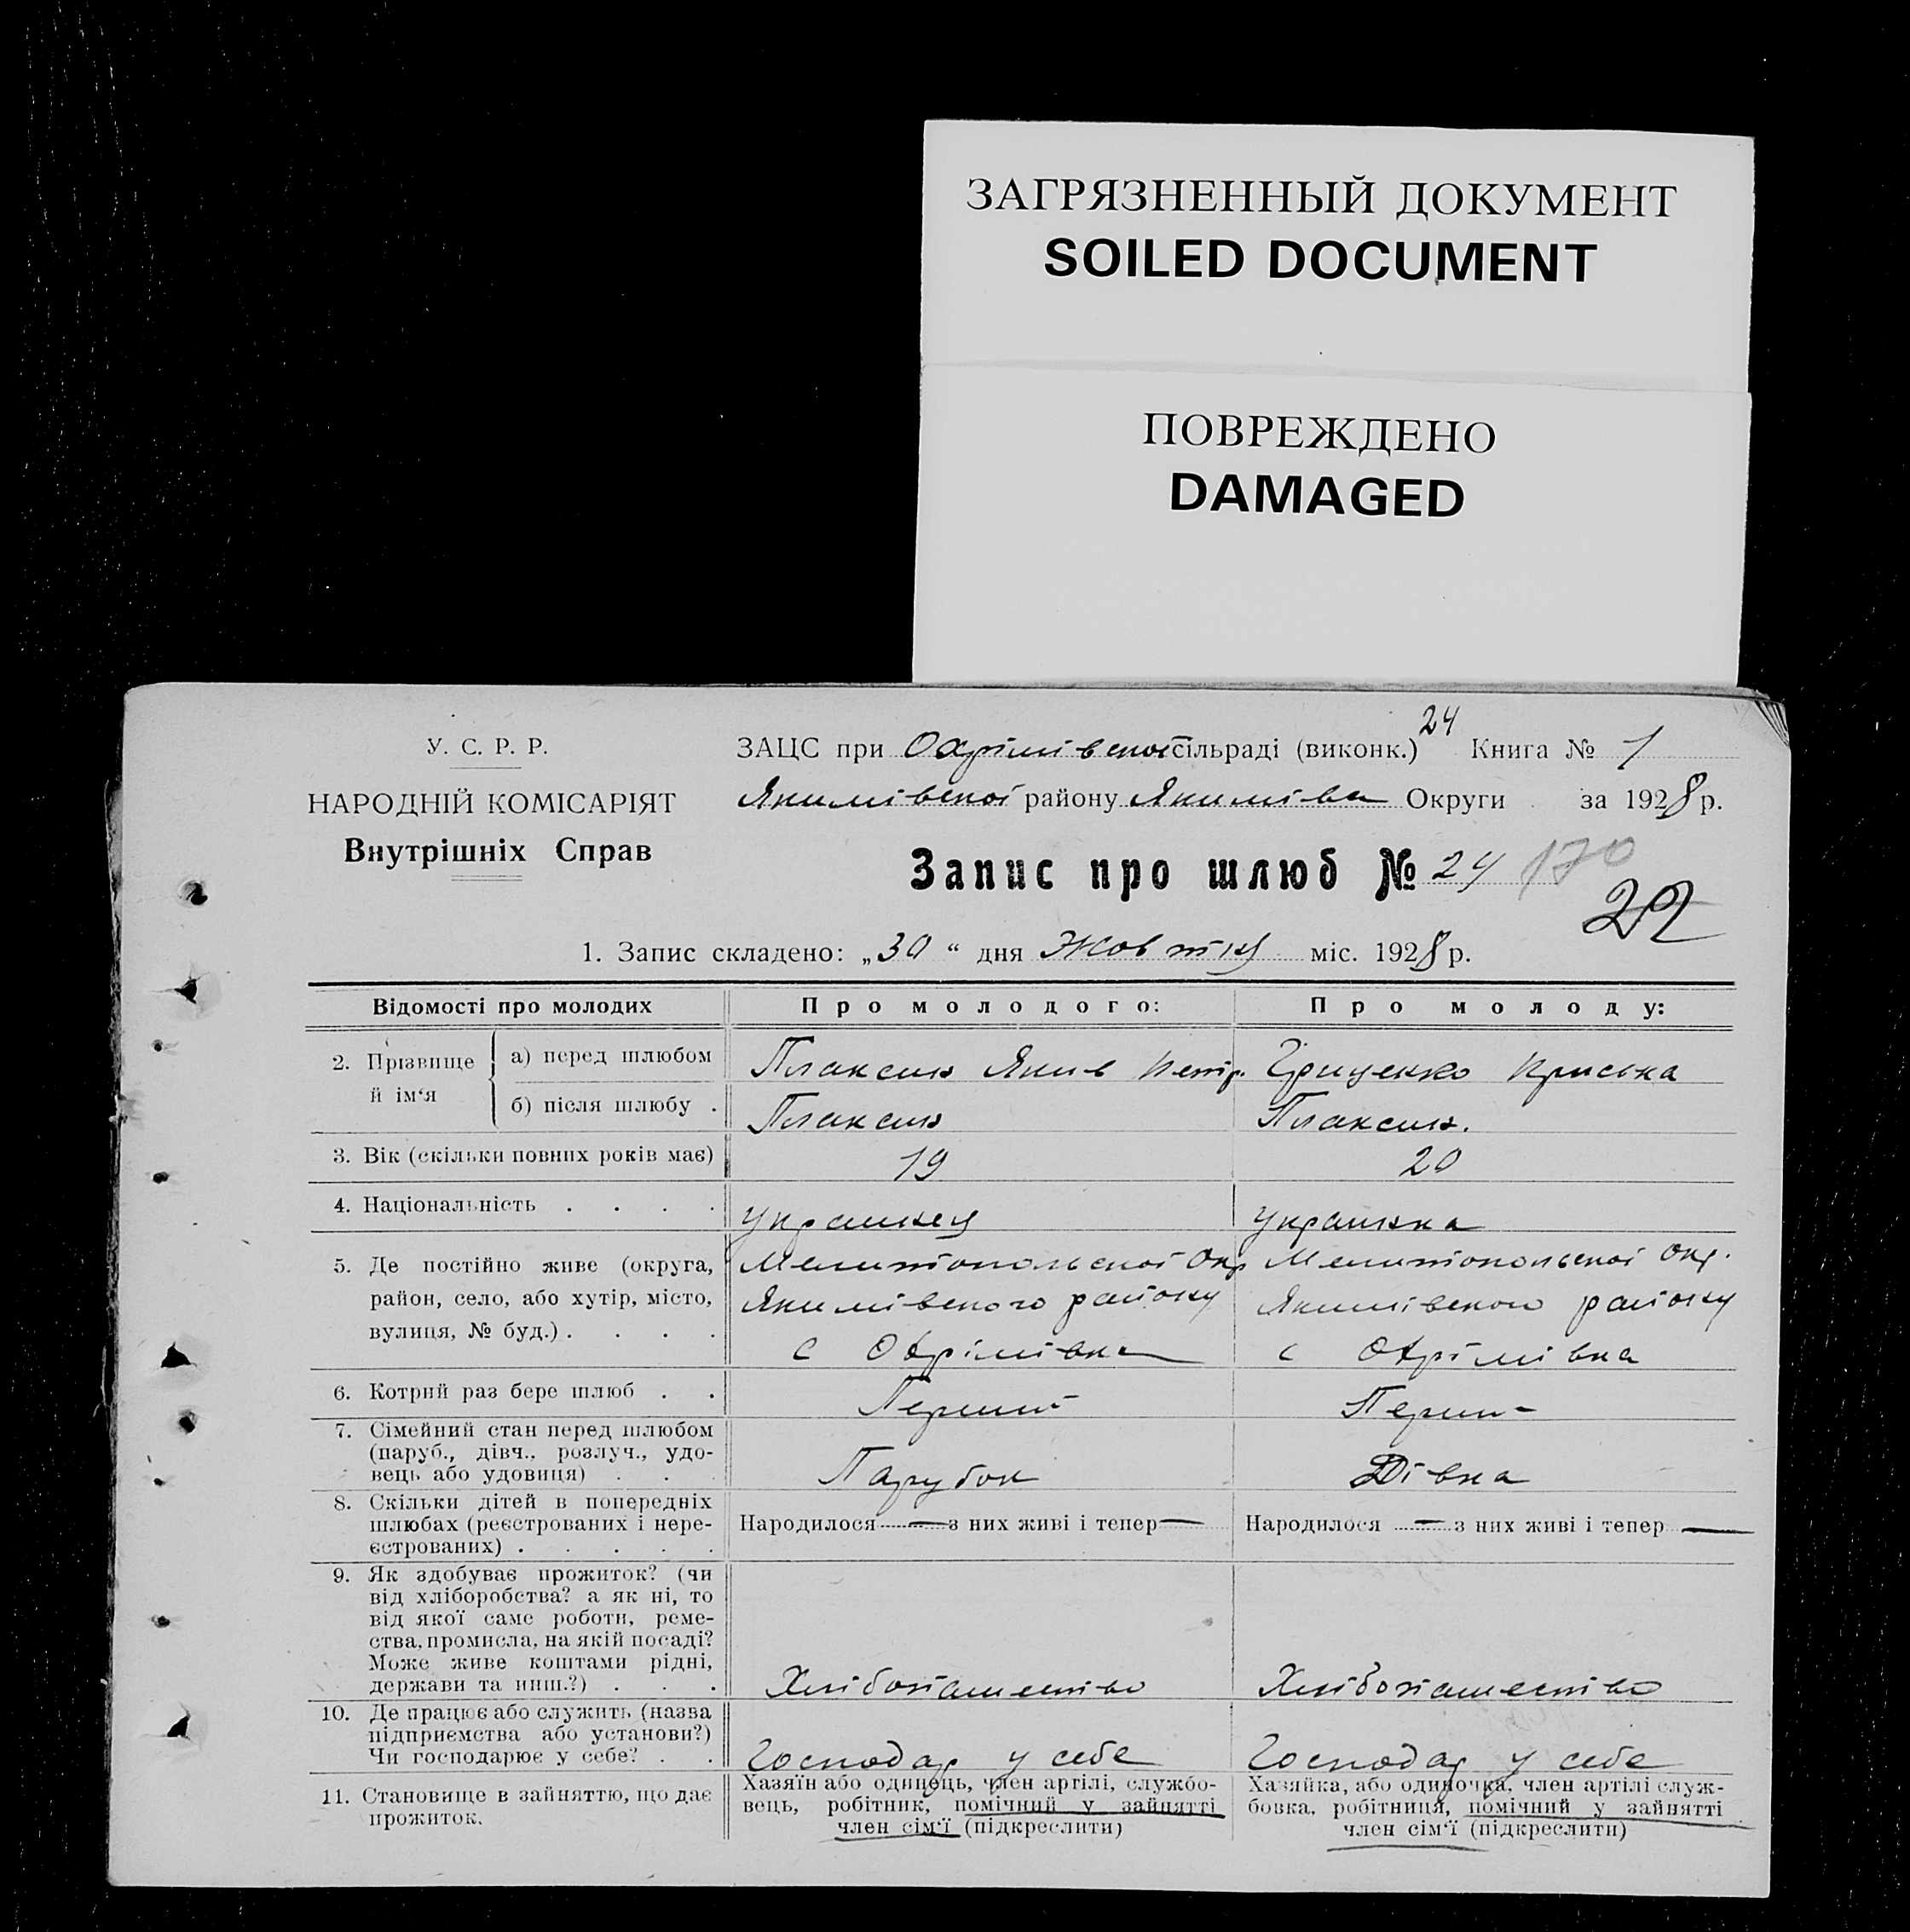 ЗАГРЯЗНЕННЫЙ ДОКУМЕНТ
SOILED DOCUMENT
ПОВРЕЖДЕНО
DAMAGED
24
У. С. Р. Р.
ЗАЦС при Охрімівської сільраді (виконк.) Книга № 1
НАРОДНІЙ КОМІСАРІЯТ
Якимівської району Якимівка Округи за 1928 р.
Внутрішніх Справ
Запис про шлюб № 24 170
22
1. Запис складено: „30“ дня Жовтня міс. 1928 р.
Відомості про молодих
Про молодого:
Про молоду:
2. Прізвище й ім‘я
а) перед шлюбом
Плаксин Яків Петр.
Гриценко Приська
б) після шлюбу .
Плаксин
Плаксин.
3. Вік (скільки повних років має)
19
20
4. Національність . . . .
Українец
Українка
5. Де постійно живе (округа,
район, село, або хутір, місто,
вулиця, № буд.) . . . .
Мелитопольської Окр
Якимівського району
с Охрімівка
Мелитопольської Окр.
Якимівського району
с Охрімівка
6. Котрий раз бере шлюб . .
Перший
Перш-
7. Сімейний стан перед шлюбом
(паруб., дівч., розлуч., удо-
вець або удовиця) . . .
Парубок
Дівка
8. Скільки дітей в попередніх
шлюбах (реєстрованих і нере-
єстрованих) . . . . .
Народилося — з них живі і тепер —
Народилося — з них живі і тепер —
9. Як здобуває прожиток? (чи
від хліборобства? а як ні, то
від якої саме роботи, реме-
ства, промисла, на якій посаді?
Може живе коштами рідні,
держави та инш.?) . . .
Хлібопашество
Хлібопашество
10. Де працює або служить (назва
підприємства або установи?)
Чи господарює у себе? . .
Господар у себе
Господар у себе
11. Становище в зайняттю, що дає
прожиток.
Хазяїн або одинець, член артілі, службо-
вець, робітник, помічний у зайнятті
член сім‘ї (підкреслити)
Хазяйка, або одиночка, член артілі служ-
бовка, робітниця, помічний у зайнятті
член сім‘ї (підкреслити)